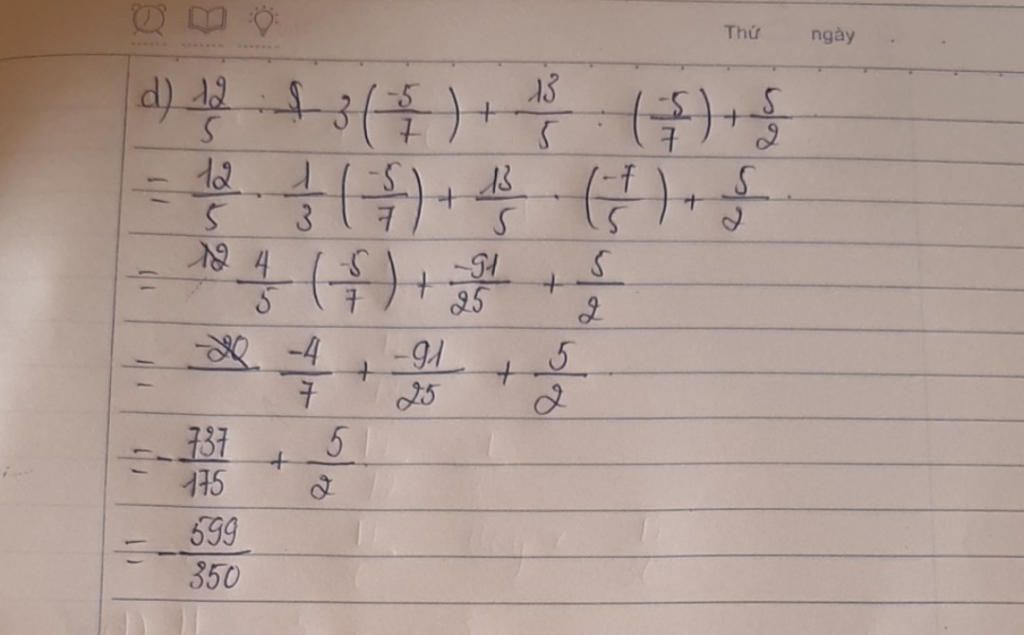 Thứ ngày . .
d) 12/5 : 3 (-5/7) + 13/5 : (-5/7) + 5/2
= 12/5 . 1/3 (-5/7) + 13/5 . (-7/5) + 5/2
= 4/5 (-5/7) + -91/25 + 5/2
= -4/7 + -91/25 + 5/2
= - 737/175 + 5/2
= - 599/350